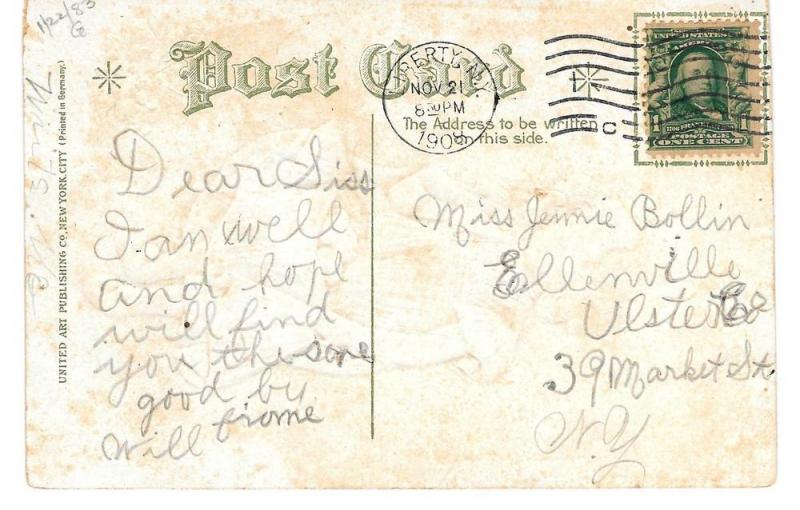 1/22/83
Post Card
LIBERTY, N.Y.
NOV 21
8 30 PM
1908
C
The Address to be written
on this side.
UNITED STATES
OF AMERICA
POSTAGE
ONE CENT
UNITED ART PUBLISHING CO., NEW YORK CITY (Printed in Germany.)
Dear Siss
I an well
and hope
will find
you the same
good by
Will frome
Miss Jennie Bollin
Ellenville
Ulster Co
39 Market St
N.Y